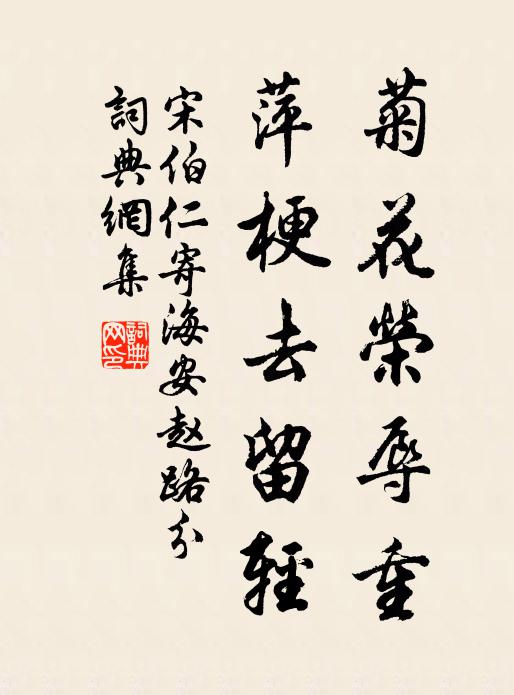 菊花榮辱重
萍梗去留輕
宋伯仁寄海安赵路分
詞典網集
詞典網印